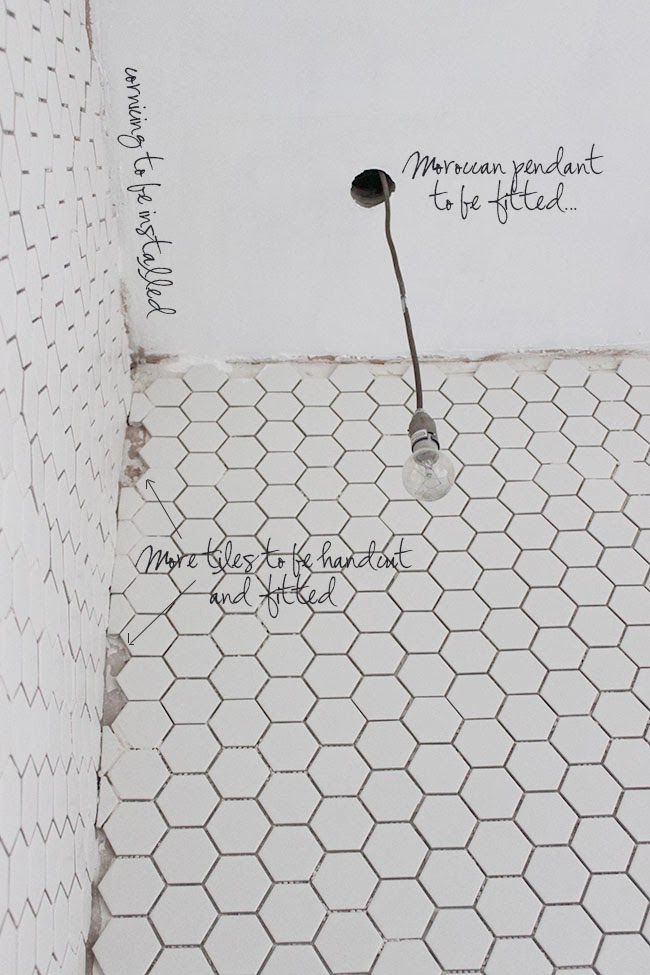 cornicing to be installed
Moroccan pendant
to be fitted...
More tiles to be handcut
and fitted